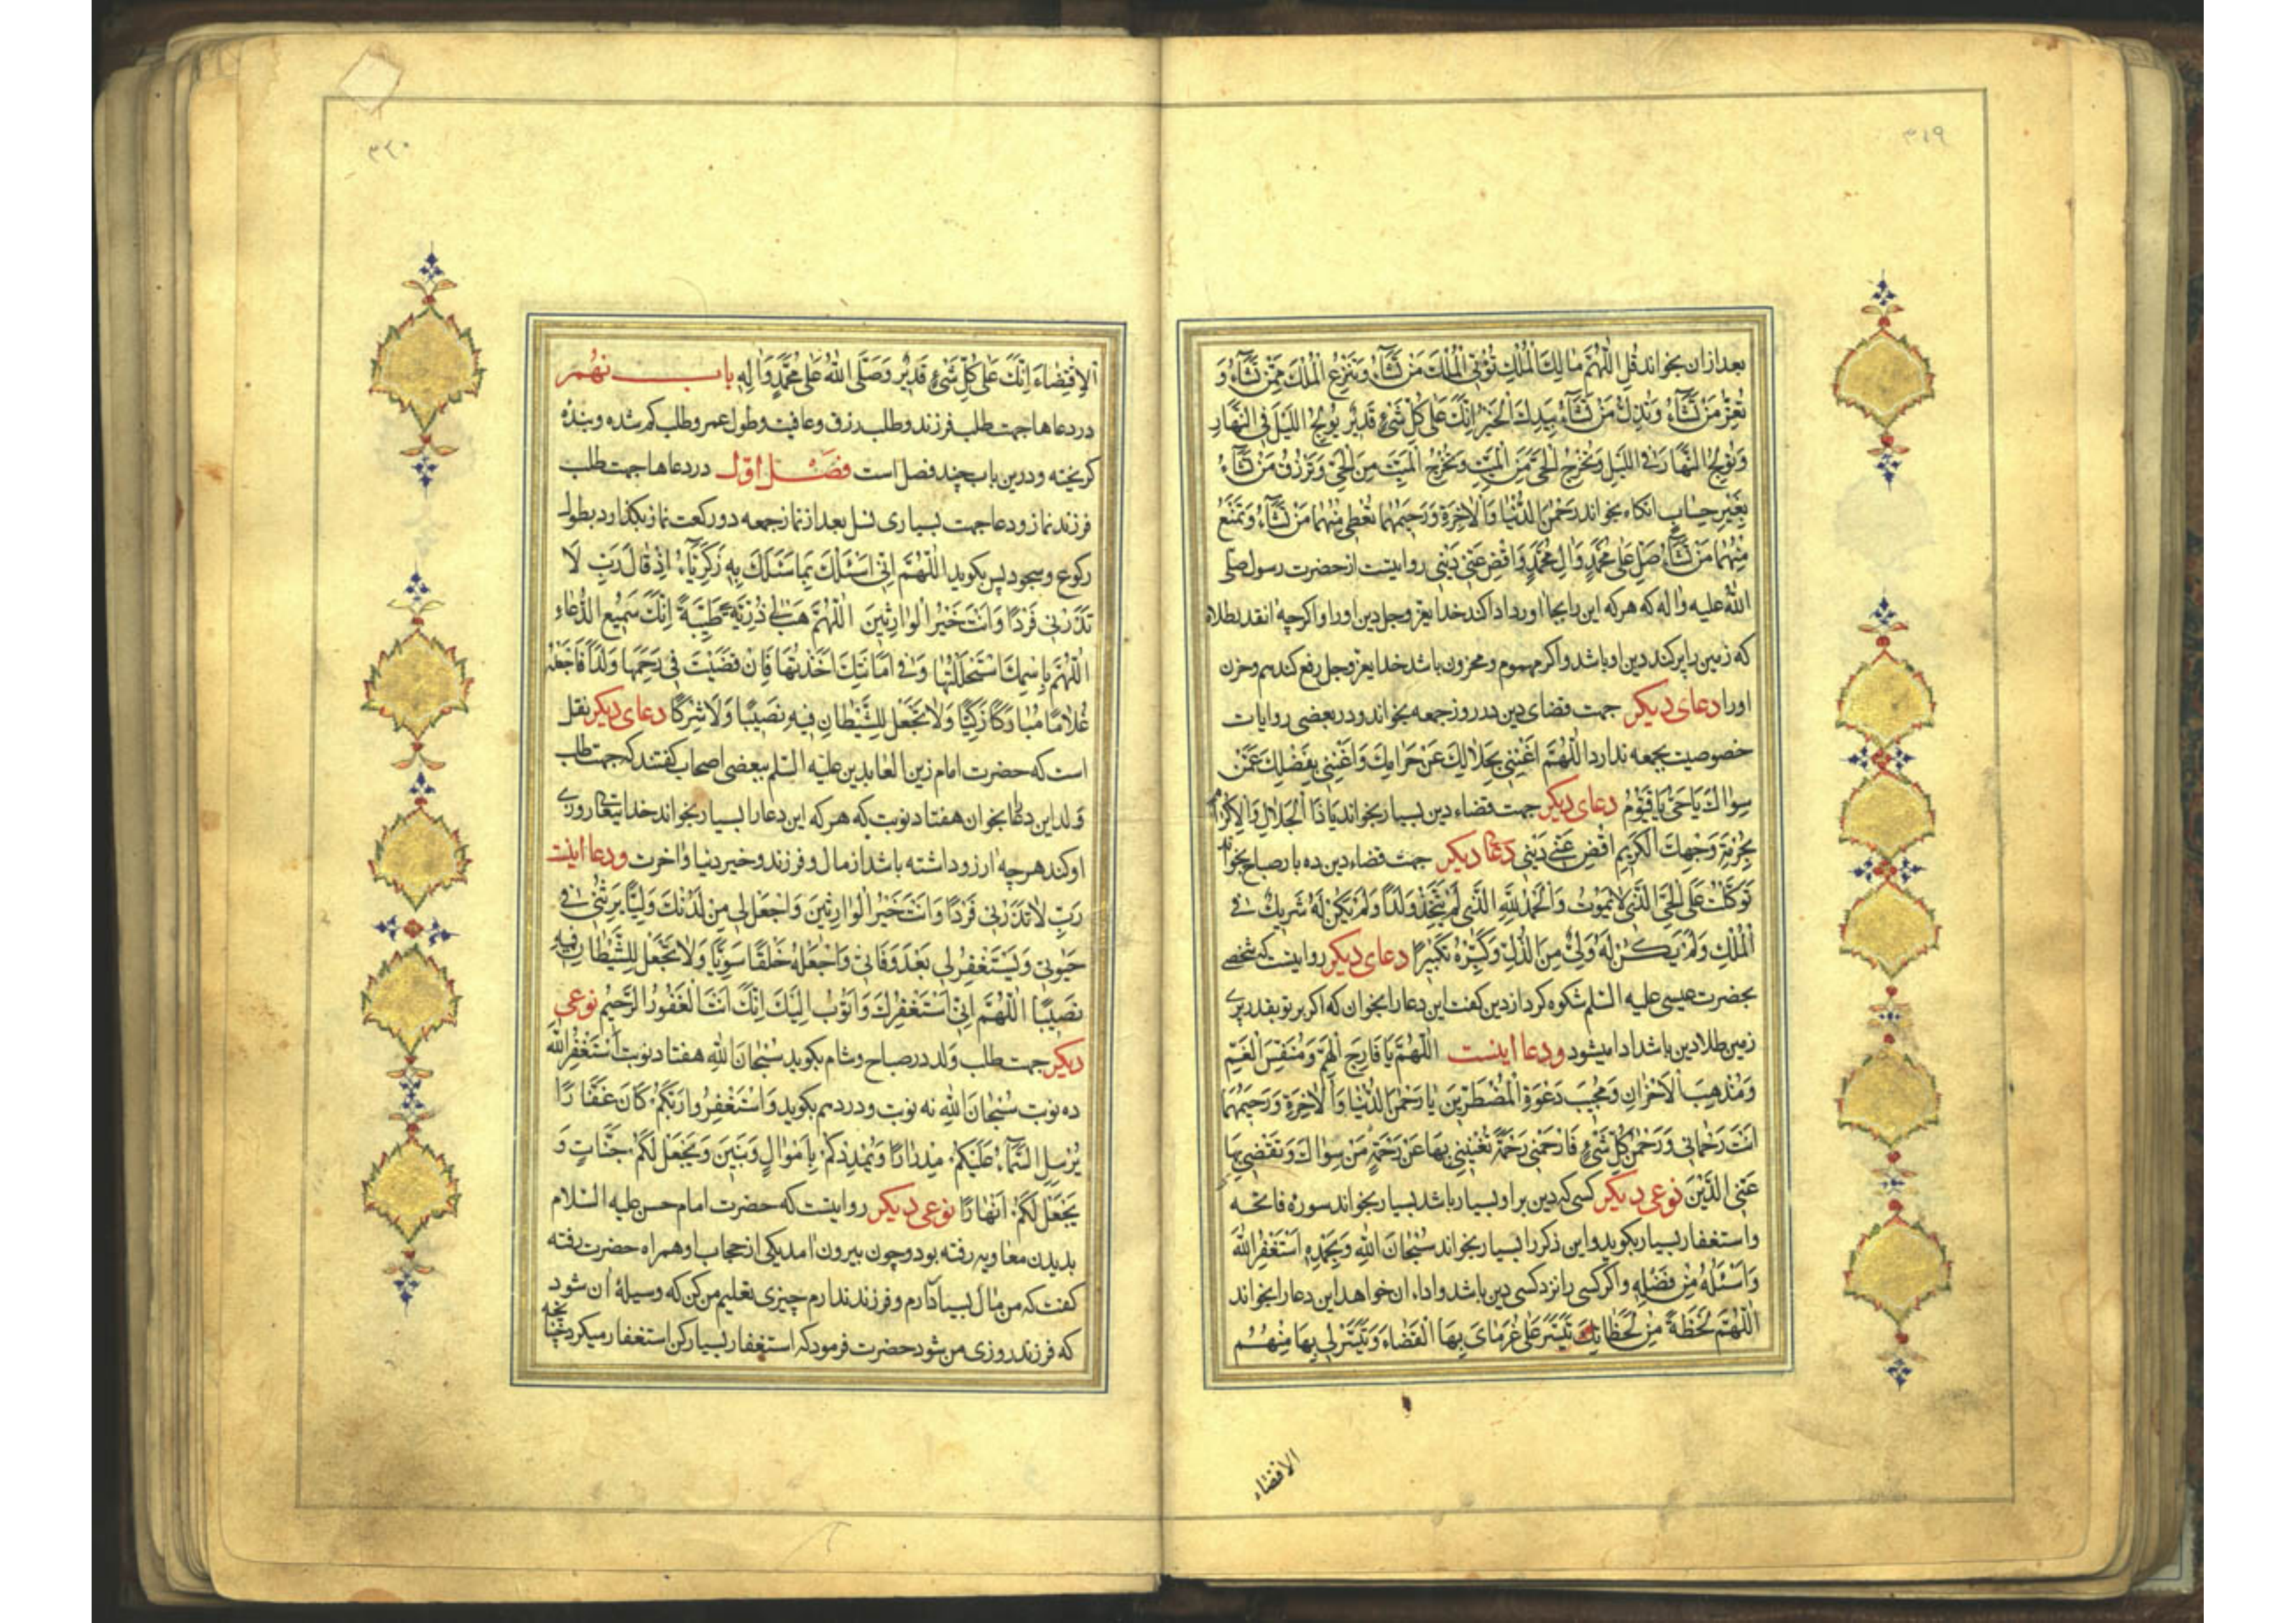 ۳۱۹
بعد ازان بخواند قُلِ اللّٰهُمَّ مالِكَ الْمُلْكِ تُؤْتِى الْمُلْكَ مَنْ تَشٰٓاءُ وَتَنْزِعُ الْمُلْكَ مِمَّنْ تَشٰٓاءُ وَ
تُعِزُّ مَنْ تَشٰٓاءُ وَتُذِلُّ مَنْ تَشٰٓاءُ بِيَدِكَ الْخَيْرُ اِنَّكَ عَلىٰ كُلِّ شَىْءٍ قَديٖرٌ تُولِجُ اللَّيْلَ فِى النَّهٰارِ
وَتُولِجُ النَّهٰارَ فِى اللَّيْلِ وَتُخْرِجُ الْحَىَّ مِنَ الْمَيِّتِ وَتُخْرِجُ الْمَيِّتَ مِنَ الْحَىِّ وَتَرْزُقُ مَنْ تَشٰٓاءُ
بِغَيْرِ حِسٰابٍ انكاه بخواند رَحْمٰنَ الدُّنْيٰا وَالْاٰخِرَةِ وَرَحيٖمَهُمٰا تُعْطى مِنْهُمٰا مَنْ تَشٰٓاءُ وَتَمْنَعُ
مِنْهُمٰا مَنْ تَشٰٓاءُ صَلِّ عَلىٰ مُحَمَّدٍ وَاٰلِ مُحَمَّدٍ وَاقْضِ عَنّى دَيْنى روايتست از حضرت رسول صلّى
اللّٰه عليه واٰله كه هر كه اين را بجا اورد ادا كند خدايعزوجل دين اورا واكر چه انقدر طلا
كه زمين را پر كند دين او باشد واكر مهموم ومحزون باشد خدايعزوجل رفع كند هم وحزن
اورا دعاى ديكر جهت قضاى دين در روز جمعه بخواند ودر بعضى روايات
خصوصيت بجمعه ندارد اللّٰهُمَّ اَغْنِنى بِحَلٰالِكَ عَنْ حَرٰامِكَ وَاَغْنِنى بِفَضْلِكَ عَمَّنْ
سِوٰاكَ يٰا حَىُّ يٰا قَيُّومُ دعاى ديكر جهت قضاء دين بسيار بخواند يٰا ذَا الْجَلٰالِ وَالْاِكْرٰامِ
بِحُرْمَةِ وَجْهِكَ الْكَريٖمِ اقْضِ عَنّى دَيْنى دعاى ديكر جهت قضاء دين ده بار صباح بخواند
تَوَكَّلْتُ عَلَى الْحَىِّ الَّذى لٰا يَمُوتُ وَالْحَمْدُ لِلّٰهِ الَّذى لَمْ يَتَّخِذْ وَلَدًا وَلَمْ يَكُنْ لَهُ شَريٖكٌ فى
الْمُلْكِ وَلَمْ يَكُنْ لَهُ وَلِىٌّ مِنَ الذُّلِّ وَكَبِّرْهُ تَكْبيٖرًا دعاى ديكر روايتست كه شخصى
بحضرت عيسى عليه السّلم شكوه كرد از دين كفت اين دعا را بخوان كه اكر بر تو بقدر پرى
زمين طلا دين باشد ادا ميشود ودعا اينست اللّٰهُمَّ يٰا فٰارِجَ الْهَمِّ وَمُنَفِّسَ الْغَمِّ
وَمُذْهِبَ الْاَحْزٰانِ وَمُجيٖبَ دَعْوَةِ الْمُضْطَرّيٖنَ يٰا رَحْمٰنَ الدُّنْيٰا وَالْاٰخِرَةِ وَرَحيٖمَهُمٰا
اَنْتَ رَحْمٰانى وَرَحْمٰنُ كُلِّ شَىْءٍ فَارْحَمْنى رَحْمَةً تُغْنيٖنى بِهٰا عَنْ رَحْمَةِ مَنْ سِوٰاكَ وَتَقْضى بِهٰا
عَنِّى الدَّيْنَ نوعى ديكر كسى كه دين بر او بسيار باشد بسيار بخواند سورۀ فاتحه
واستغفار بسيار بكويد واين ذكر را بسيار بخواند سُبْحٰانَ اللّٰهِ وَبِحَمْدِهِ اَسْتَغْفِرُ اللّٰهَ
وَاَسْئَلُهُ مِنْ فَضْلِهِ واكر كسى را نزد كسى دين باشد واداء ان خواهد اين دعا را بخواند
اللّٰهُمَّ لَحْظَةً مِنْ لَحَظٰاتِكَ تَيَسَّرْ عَلىٰ غُرَمٰاىَ بِهَا الْقَضٰاءَ وَتَيَسَّرْ لى بِهٰا مِنْهُمُ
الاقتضاء
۳۲۰
اَلْاِقْتِضٰاءَ اِنَّكَ عَلىٰ كُلِّ شَىْءٍ قَديٖرٌ وَصَلَّى اللّٰهُ عَلىٰ مُحَمَّدٍ وَاٰلِهِ باب نهم
در دعاها جهت طلب فرزند وطلب رزق وعافيت وطول عمر وطلب كم شده وبنده
كريخته ودرين باب چند فصل است فصل اوّل در دعاها جهت طلب
فرزند نماز ودعا جهت بسيارى نسل بعد از نماز جمعه دو ركعت نماز بكذارد بطول
ركوع وسجود پس بكويد اللّٰهُمَّ اِنّى اَسْئَلُكَ بِمٰا سَئَلَكَ بِهِ زَكَرِيّٰآءُ اِذْ قٰالَ رَبِّ لٰا
تَذَرْنى فَرْدًا وَاَنْتَ خَيْرُ الْوٰارِثيٖنَ اللّٰهُمَّ هَبْ لى ذُرِّيَّةً طَيِّبَةً اِنَّكَ سَميٖعُ الدُّعٰاءِ
اللّٰهُمَّ بِاسْمِكَ اسْتَحْلَلْتُهٰا وَفى اَمٰانَتِكَ اَخَذْتُهٰا فَاِنْ قَضَيْتَ فى رَحِمِهٰا وَلَدًا فَاجْعَلْهُ
غُلٰامًا مُبٰارَكًا زَكِيًّا وَلٰا تَجْعَلْ لِلشَّيْطٰانِ فيٖهِ نَصيٖبًا وَلٰا شِرْكًا دعاى ديكر نقل
است كه حضرت امام زين العابدين عليه السّلم ببعضى اصحاب كفتند كه جهت طلب
ولد اين دعا بخوان هفتاد نوبت كه هر كه اين دعا را بسيار بخواند خدايتعالى روزى
او كند هر چه ارزو داشته باشد از مال وفرزند وخير دنيا واخرت ودعا اينست
رَبِّ لٰا تَذَرْنى فَرْدًا وَاَنْتَ خَيْرُ الْوٰارِثيٖنَ وَاجْعَلْ لى مِنْ لَدُنْكَ وَلِيًّا يَرِثُنى فى
حَيٰوتى وَيَسْتَغْفِرُ لى بَعْدَ وَفٰاتى وَاجْعَلْهُ خَلْقًا سَوِيًّا وَلٰا تَجْعَلْ لِلشَّيْطٰانِ فيٖهِ
نَصيٖبًا اللّٰهُمَّ اِنّى اَسْتَغْفِرُكَ وَاَتُوبُ اِلَيْكَ اِنَّكَ اَنْتَ الْغَفُورُ الرَّحيٖمُ نوعى
ديكر جهت طلب ولد در صباح وشام بكويد سُبْحٰانَ اللّٰهِ هفتاد نوبت اَسْتَغْفِرُ اللّٰهَ
ده نوبت سُبْحٰانَ اللّٰهِ نه نوبت ودر دهم بكويد وَاسْتَغْفِرُوا رَبَّكُمْ كٰانَ غَفّٰارًا
يُرْسِلِ السَّمٰٓاءَ عَلَيْكُمْ مِدْرٰارًا وَيُمْدِدْكُمْ بِاَمْوٰالٍ وَبَنيٖنَ وَيَجْعَلْ لَكُمْ جَنّٰاتٍ وَ
يَجْعَلْ لَكُمْ اَنْهٰارًا نوعى ديكر روايتست كه حضرت امام حسن عليه السّلام
بديدن معاويه رفته بود وچون بيرون امد يكى از حجاب او همراه حضرت رفته
كفت كه من مال بسيار دارم وفرزند ندارم چيزى تعليم من كن كه وسيلۀ ان شود
كه فرزند روزى من شود حضرت فرمود كه استغفار بسيار كن استغفار ميكرد